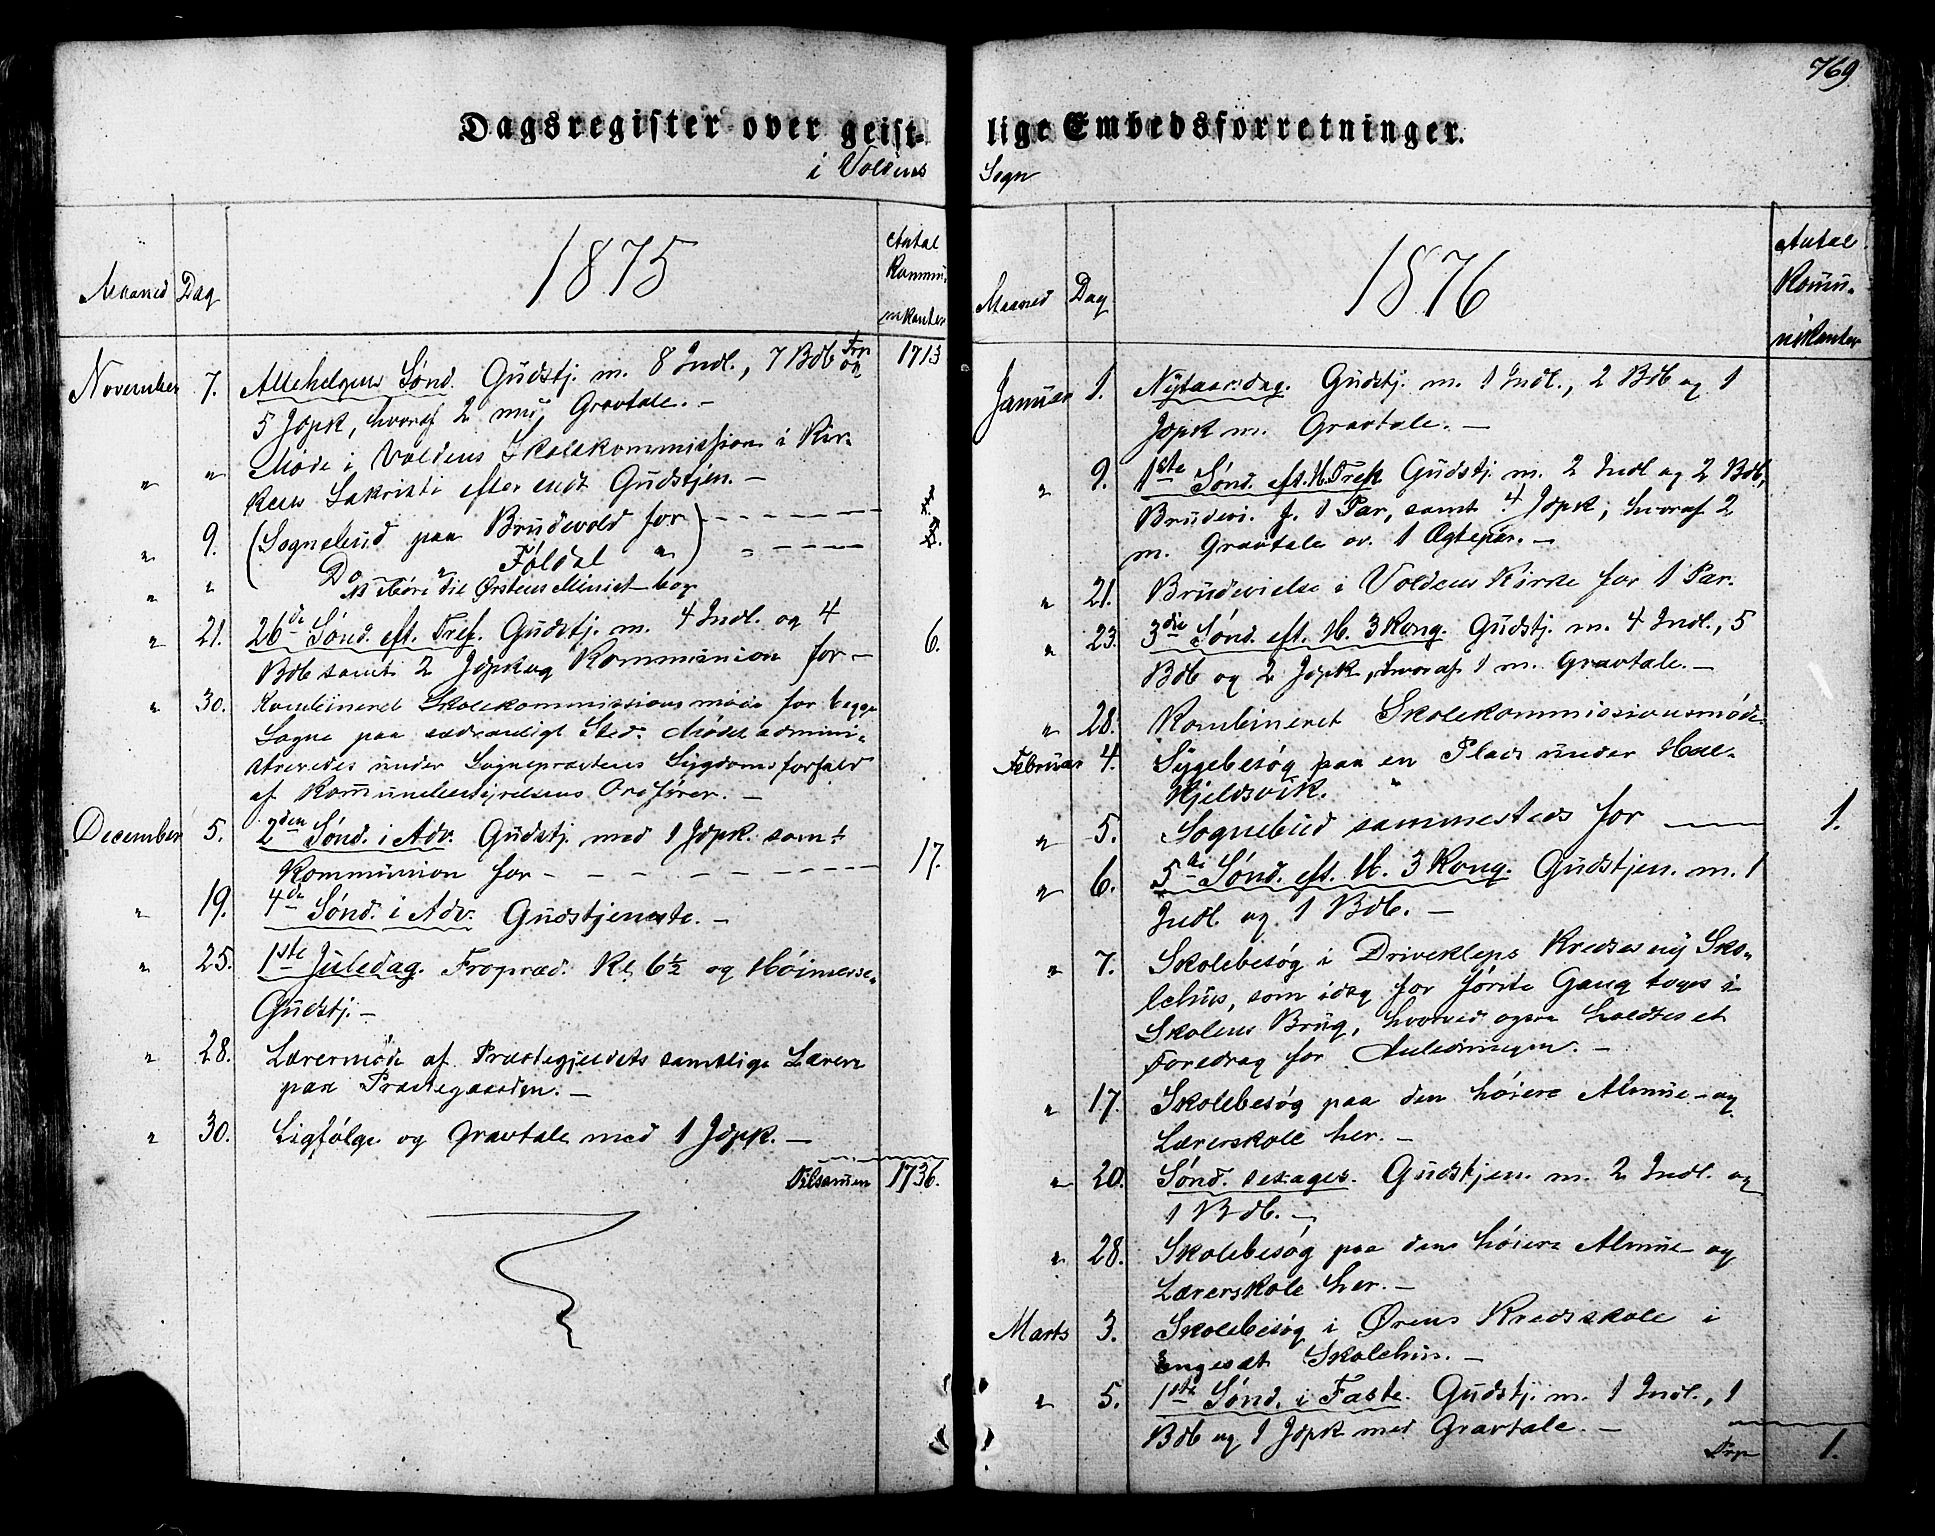 769
Dagsregister over geist-
i Voldens
1875
Maaned Dag
Antal
Kommu-
nikanter
November 7. Allehelgens Sønd. Gudstj. m. 8 Indl., 7 Bdb 1713
5 Jdpk, hvoraf 2 m. Gravtale. —
" " Møde i Voldens Skolekommission i Kir-
kens Sakristi efter endt Gudstjen. —
" 9. (Sognebud paa Brudevold for) - - - - -
" " Do " Foldal " " - - - -
NB hører til Ørstens Minist-bog
" 21. 26de Sønd. eft. Tref. Gudstj. m. 4 Indl. og 4 6.
Bdb samt 2 Jdpk og Kommunion for —
" 30. Kombineret Skolekommissionsmøde for begge
Sogne paa sædvanligt Sted. Mødet admini-
streredes under Sognepræstens Sygdomsforfald
af Kommunebestyrelsens Ordfører. —
December 5. 2den Sønd. i Adv. Gudstj. med 1 Jdpk. samt
Kommunion for - - - - - - - 17.
" 19. 4de Sønd. i Adv. Gudstjeneste. —
" 25. 1ste Juledag. Fropræd. Kl. 6½ og Høimesse-
Gudstj. —
" 28. Lærermøde af Præstegjeldets samtlige Lærere
paa Præstegaarden. —
" 30. Ligfølge og Gravtale med 1 Jdpk. —
Tilsammen 1736.
lige Embedsforretninger.
Sogn
1876
Maaned Dag
Antal
Kommu-
nikanter
Januar 1. Nytaarsdag. Gudstj. m. 1 Indl., 2 Bdb og 1
Jdpk m. Gravtale. —
" 9. 1ste Sønd. eft. H. Tref. Gudstj. m. 2 Indl og 2 Bdb,
Brudevi. f. 1 Par, samt 4 Jdpk, hvoraf 2
m. Gravtale ov. 1 Ægtepar. —
" 21. Brudevielse i Voldens Kirke for 1 Par.
" 23. 3die Sønd. eft. H. 3 Kong. Gudstj. m. 4 Indl., 5
Bdb og 2 Jdpk, hvoraf 1 m. Gravtale. —
" 28. Kombineret Skolekommissionsmøde
Februar 4. Sygebesøg paa en Plads under
Kjeldsvik.
" 5. Sognebud sammesteds for — 1.
" 6. 5te Sønd. eft. H. 3 Kong. Gudstjen. m. 1
Indl og 1 Bdb. —
" 7. Skolebesøg i Drivekleps Kredses ny Sko-
lehus, som idag for første Gang toges i
Skolens Brug, hvorved ogsaa holdtes et
Foredrag for Anledningen. —
" 17. Skolebesøg paa den høiere Almue- og
Lærerskole her. —
" 20. Sønd. Sexages. Gudstjen. m. 2 Indl. og
1 Bdb. —
" 28. Skolebesøg paa den høiere Almue- og
Lærerskole her. —
Marts 3. Skolebesøg i Ørens Kredsskole i
Engeset Skolehus. —
" 5. 1ste Sønd. i Faste. Gudstj. m. 1 Indl., 1
Bdb og 1 Jdpk med Gravtale. —
1.